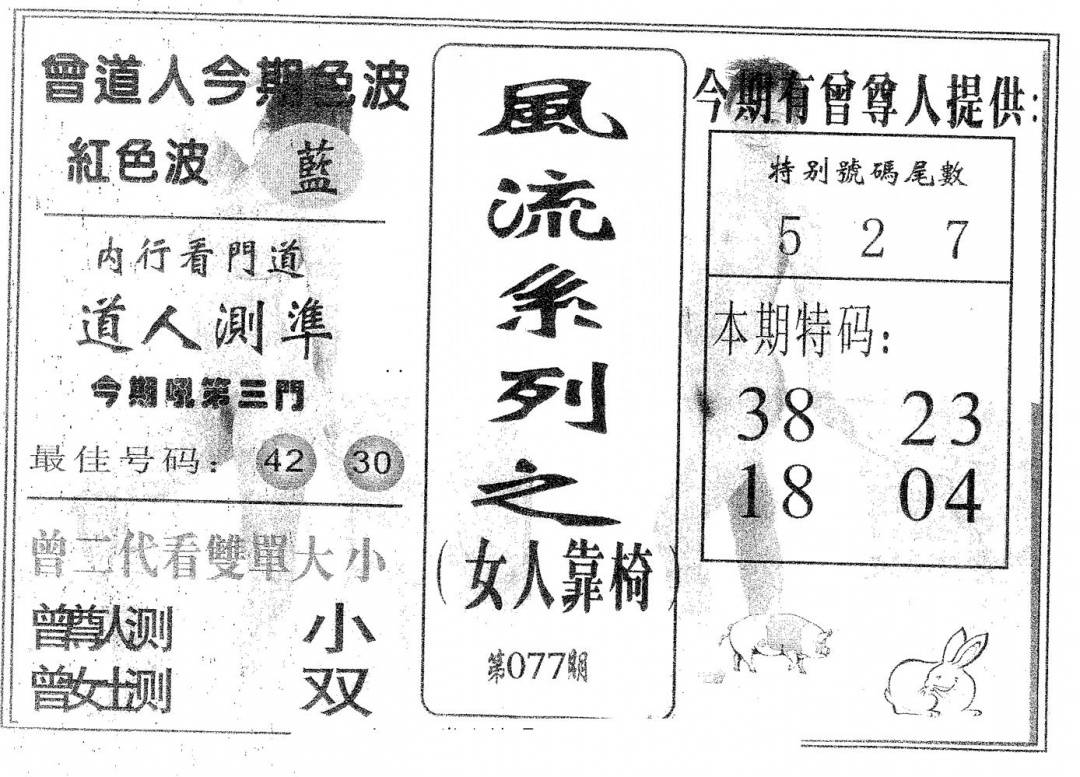 曾道人今期色波
紅色波 藍
内行看門道
道人測準
今期吼第三門
最佳号码: 42 30
曾二代看雙單大小
曾尊人测 小
曾女士测 双
風流系列之
(女人靠椅)
第077期
今期有曾尊人提供:
特别號碼尾數
5 2 7
本期特码:
38 23
18 04